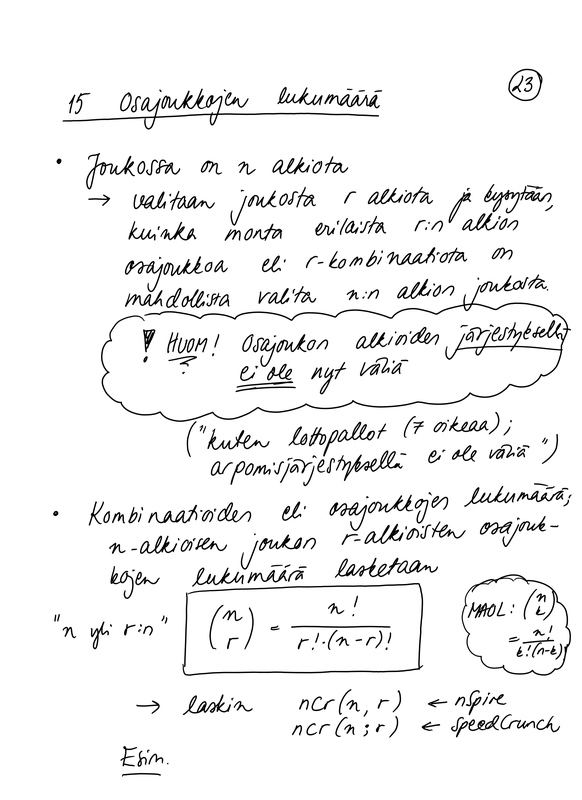 23
15 Osajoukkojen lukumäärä
• Joukossa on n alkiota
→ valitaan joukosta r alkiota ja kysytään,
kuinka monta erilaista r:n alkion
osajoukkoa eli r-kombinaatiota on
mahdollista valita n:n alkion joukosta.
! HUOM! Osajoukon alkioiden järjestyksellä
ei ole nyt väliä
("kuten lottopallot (7 oikeaa);
arpomisjärjestyksellä ei ole väliä")
• Kombinaatioiden eli osajoukkojen lukumäärä;
n-alkioisen joukon r-alkioisten osajouk-
kojen lukumäärä lasketaan
"n yli r:n" (n r) = n! / r!·(n-r)!
MAOL: (n k)
= n! / k!(n-k)!
→ laskin nCr(n, r) ← nSpire
nCr(n; r) ← SpeedCrunch
Esim.